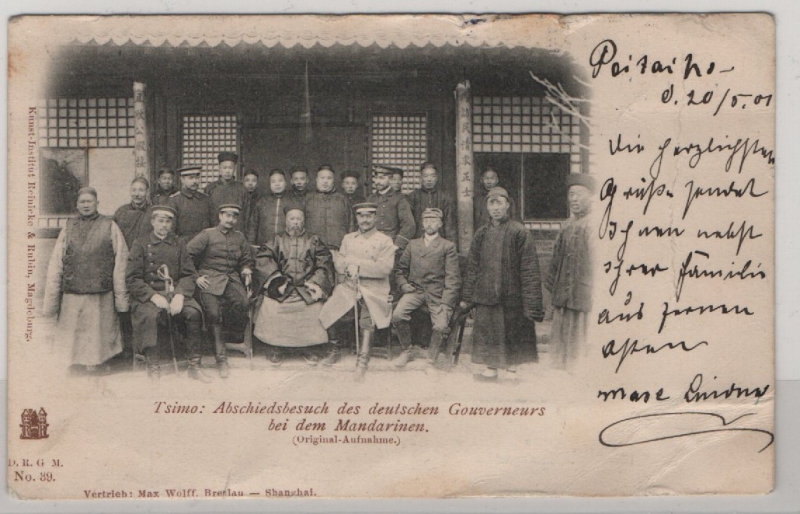 Kunst-Institut Reinicke & Rubin, Magdeburg.
Peitaiho
d. 20/5. 01
Die herzlichsten
Grüße sendet
Ihnen nebst
Ihrer Familie
aus fernen
Osten
Max
Tsimo: Abschiedsbesuch des deutschen Gouverneurs
bei dem Mandarinen.
(Original-Aufnahme.)
D. R. G. M.
No. 39.
Vertrieb: Max Wolff, Breslau — Shanghai.